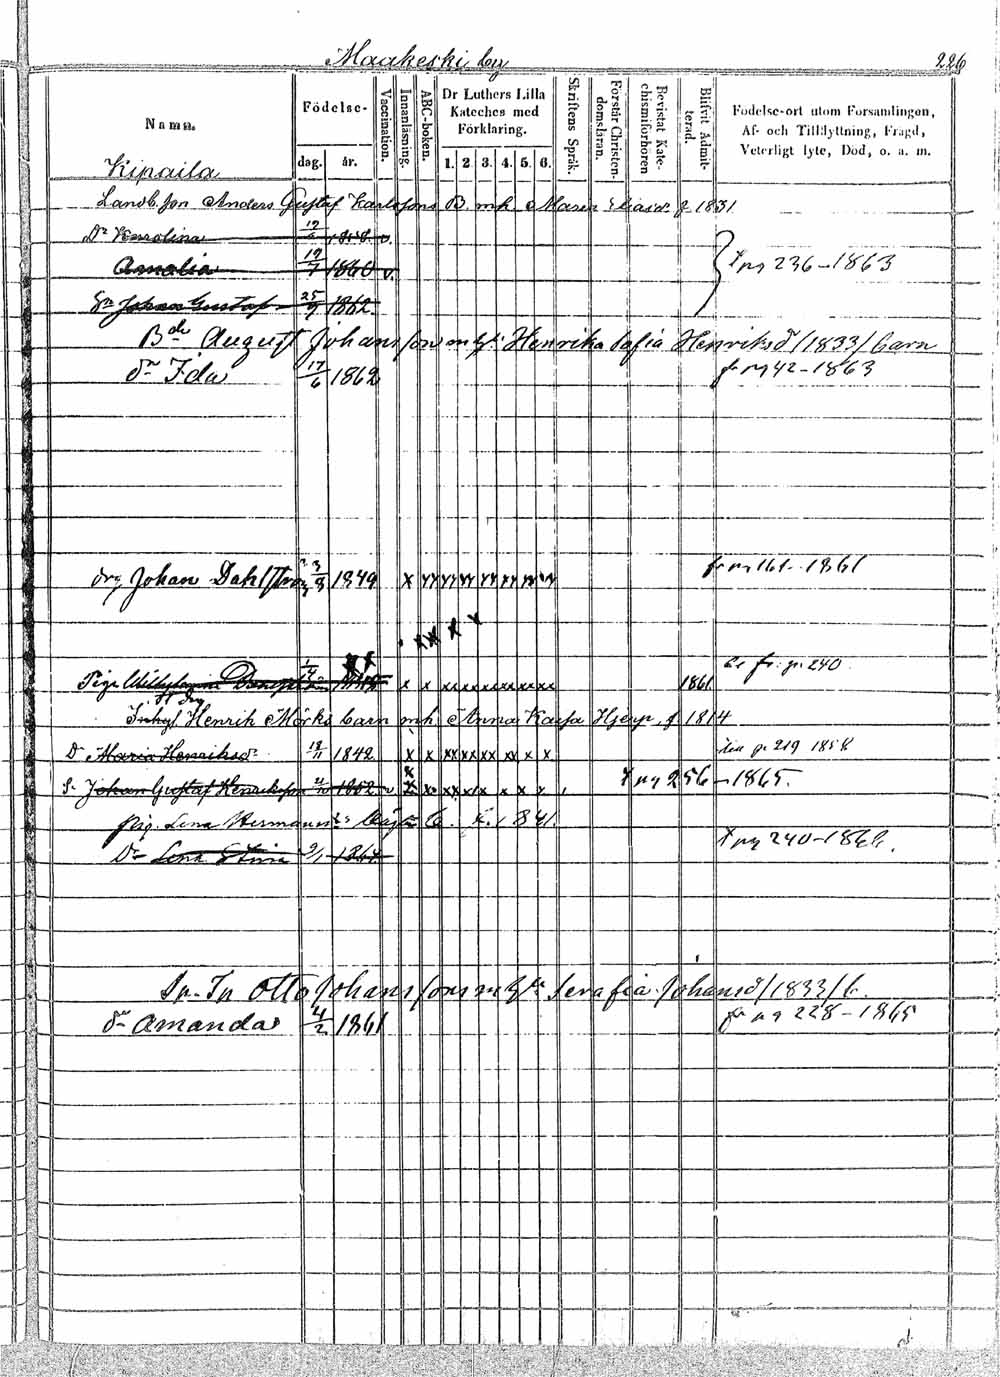 Maakeski by
226
Namn.
Födelse-
dag.
år.
Vaccination.
Innanläsning.
ABC-boken.
Dr Luthers Lilla
Kateches med
Förklaring.
1. 2. 3. 4. 5. 6.
Skriftens Språk.
Forstår Christen-
domslaran.
Bevistat Kate-
chismiforhören
Blifvit Admit-
terad.
Födelse-ort utom Forsamlingen,
Af- och Tillflyttning, Fragd,
Veterligt lyte, Död, o. a. m.
Kipaila
Landb. son Anders Gustaf Karlssons B. m h. Maria Eliasdr f 1831
Dr Karolina 1858 v.
Amalia 19/7 1860 v.
x pag 236-1863
Sn Johan Gustaf 25/9 1862
Bde August Johansson m hu Henrika Sofia Henriksd /1833/ barn
dr Ida 17/6 1862 fr pag 42-1863
drg Johan Dahlström 3/8 1849 x
fr pag 161-1861
Piga Wilhelmina 1/4 x x 1861
fr. p. 240
Inhys Henrik Mörks barn m h Anna Kajsa Hjerp, f 1814
Dr Maria Henriksdr 18/11 1842 x x xx xx xx x x
p 219 1858
S. Johan Gustaf Henriksson 1852 v x x
x pag 256-1865.
pig. Lena Hermansdr f. 1841.
Dr Lena Stina 1864
x pag 240-1866.
Sn. In Otto Johansson m hu Serafia Johansd /1833/ b.
dr Amanda 4/2 1861 fr pag 228-1865